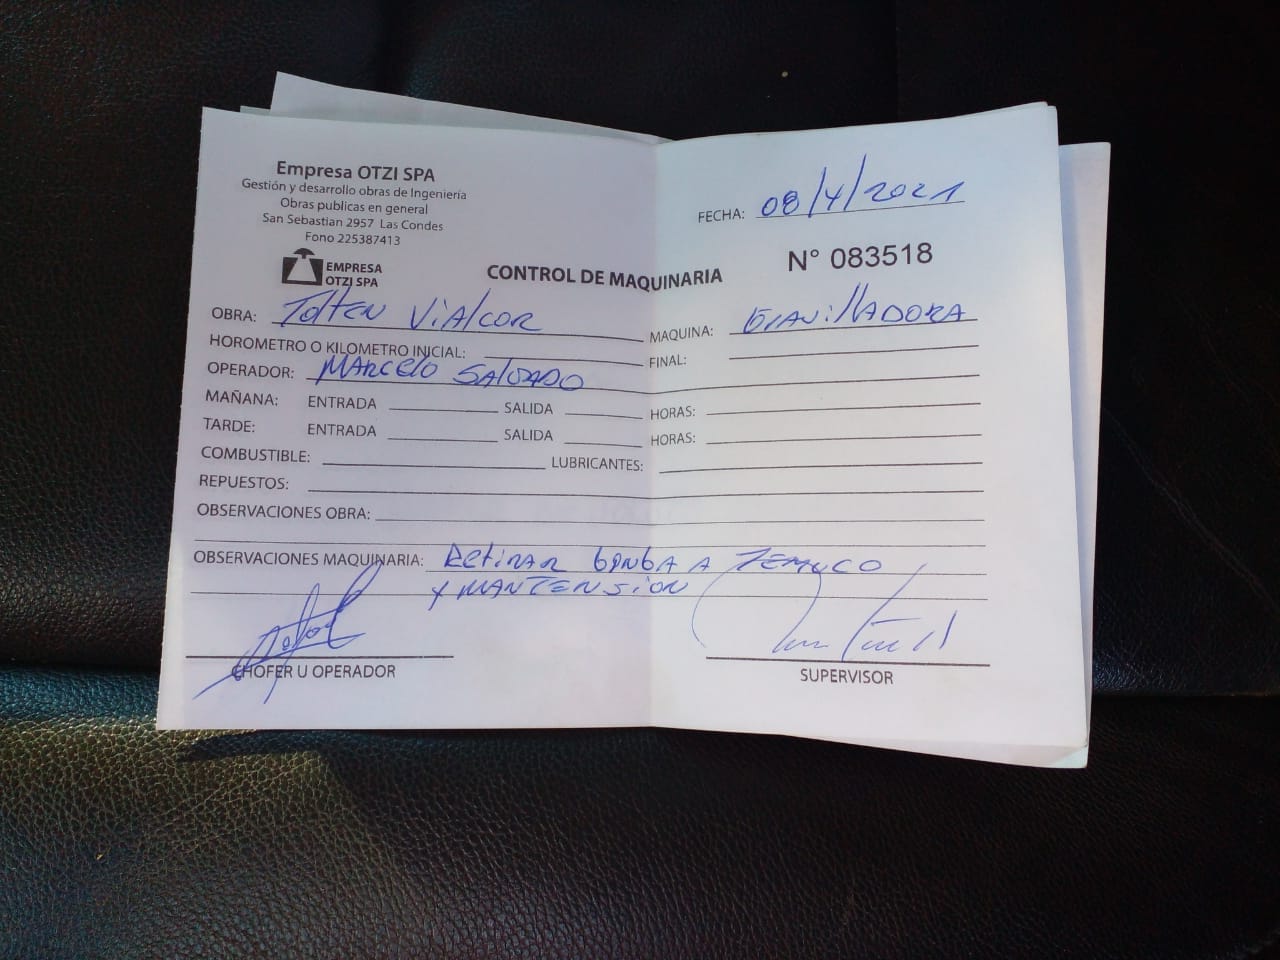 Empresa OTZI SPA
Gestión y desarrollo obras de Ingeniería
Obras publicas en general
San Sebastian 2957 Las Condes
Fono 225387413
EMPRESA
OTZI SPA
FECHA: 08/4/2021
N° 083518
CONTROL DE MAQUINARIA
OBRA: Tolten Vialcor MAQUINA: Gravilladora
HOROMETRO O KILOMETRO INICIAL: FINAL:
OPERADOR: Marcelo Salgado
MAÑANA: ENTRADA SALIDA HORAS:
TARDE: ENTRADA SALIDA HORAS:
COMBUSTIBLE: LUBRICANTES:
REPUESTOS:
OBSERVACIONES OBRA:
OBSERVACIONES MAQUINARIA: Retirar bomba a Temuco
y mantension
CHOFER U OPERADOR SUPERVISOR